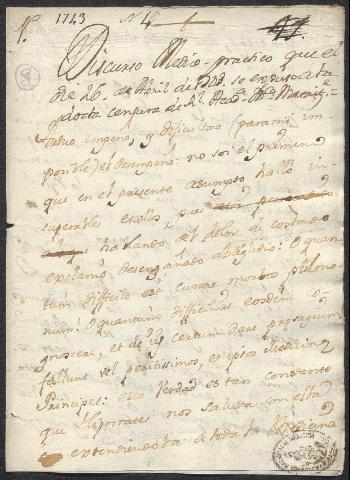 1743 N 4
Discurso Medico-practico que el
dia 26. de Abril de 1743 se expuso a la
docta censura de la R.l Acad.a M.a Matrit.e
Arduo empeño, y dificultoso (para mi im
posible) el desempeño: no soi el primero
que en el presente asumpto halló in-
superables escollos, pues
hablando del dolor de costado
exclamó desengañado Baglivio: O quan-
tum difficile est curare morbos pulmo-
num! O quantum difficilius eosdem co-
gnoscere, et de iis certum dare presagium
fallunt vel peritissimos, et ipsos Medicinæ
Principes: esta verdad es tan constante
que Hipocrates nos saluda con ella
extendiendola a toda la Medicina